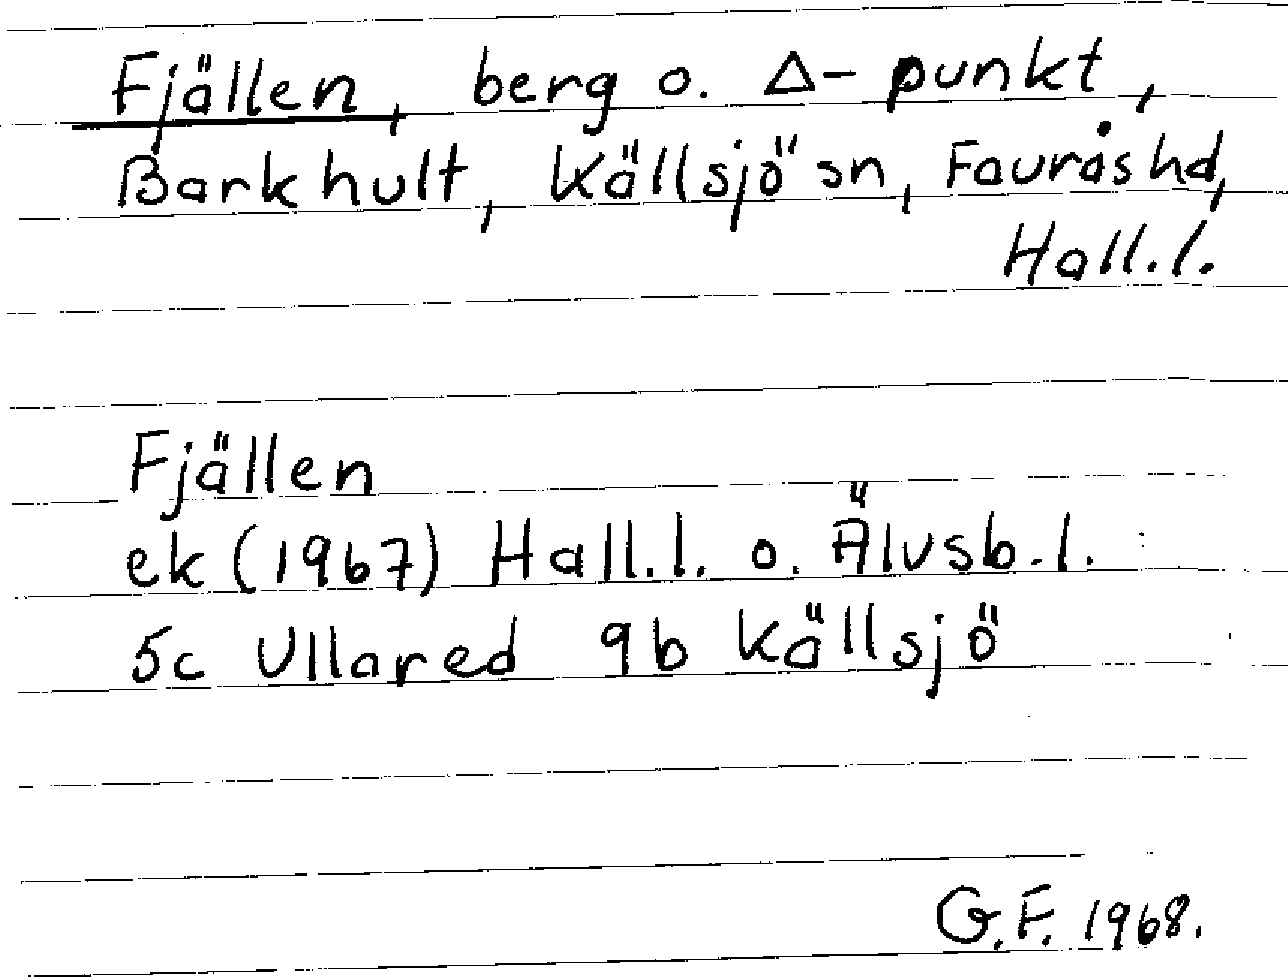 Fjällen, berg o. Δ-punkt,
Barkhult, Källsjö sn, Faurås hd,
Hall.l.
Fjällen
ek (1967) Hall.l. o. Älvsb.l.
5c Ullared 9b Källsjö
G.F. 1968.